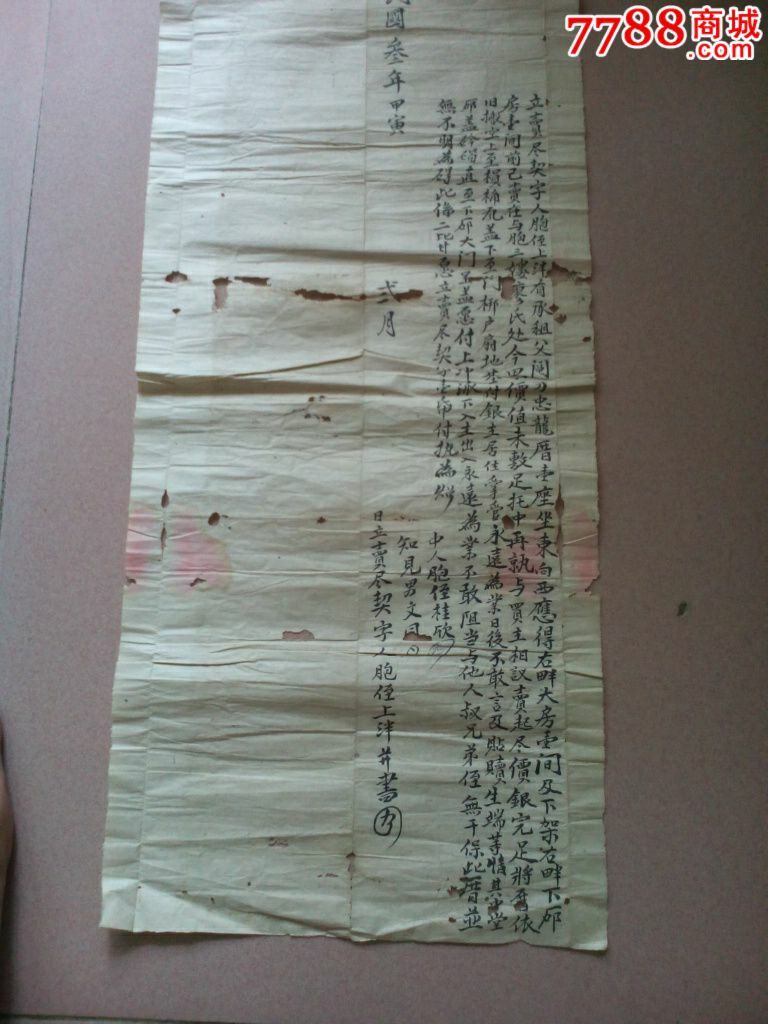 7788商城
.com
立賣尽契字人胞侄上泮有承祖父阄分忠龍厝壹座坐東向西應得右畔大房壹间及下架右畔下邸
房壹间前已賣在与胞三嬸廖氏处今因價值未敷足托中再執与買主相议賣起尽價銀完足將厝依
旧撤空上至梹桷瓦盖下至门栁户扇地基付銀主居住掌管永遠為業日後不敢言及贴贖生端等情其中堂
邸盖 直至下邸大门 盖愿付上 下入主出入永遠為業不敢阻当与他人叔兄弟侄無干保此厝並
無不明為碍此係二比甘愿立賣尽契字壹帋付执為炤
中人胞侄桂欣
知見男文同
民國叁年甲寅 弍月 日立賣尽契字人胞侄上泮并書